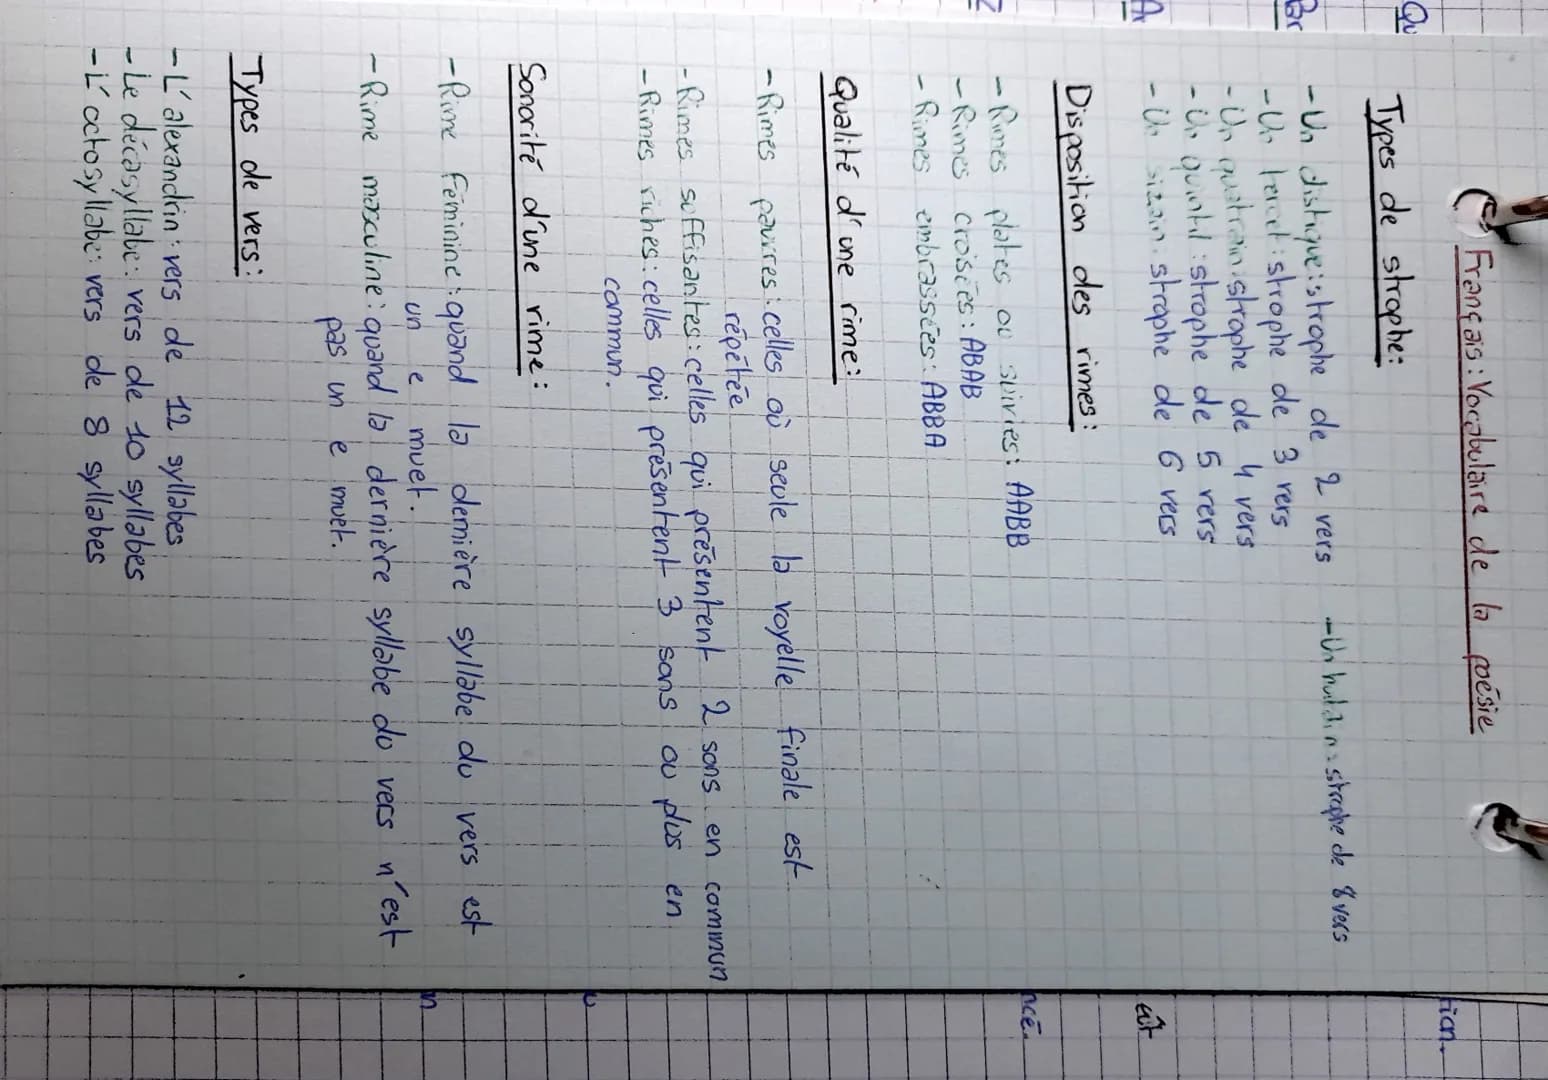 Français : Vocabulaire de la poésie
Types de strophe :
- Un distique : strophe de 2 vers
- Un huitain : strophe de 8 vers
- Un tercet : strophe de 3 vers
- Un quatrain : strophe de 4 vers
- Un quintil : strophe de 5 vers
- Un sizain : strophe de 6 vers
Disposition des rimes :
- Rimes plates ou suivies : AABB
- Rimes croisées : ABAB
- Rimes embrassées : ABBA
Qualité d'une rime :
- Rimes pauvres : celles où seule la voyelle finale est
répétée
- Rimes suffisantes : celles qui présentent 2 sons en commun
- Rimes riches : celles qui présentent 3 sons ou plus en
commun.
Sonorité d'une rime :
- Rime féminine : quand la dernière syllabe du vers est
un e muet.
- Rime masculine : quand la dernière syllabe du vers n'est
pas un e muet.
Types de vers :
- L'alexandrin : vers de 12 syllabes
- Le décasyllabe : vers de 10 syllabes
- L'octosyllabe : vers de 8 syllabes